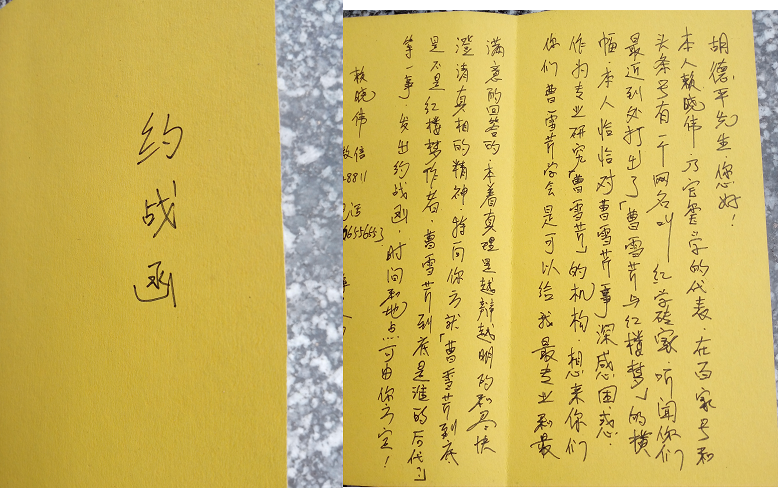 约战函
胡德平先生您好！
本人赖晓伟乃官学的代表.在百家号和
头条号有一个网名叫红学砖家.听闻你们
最近到处打出了「曹雪芹与红楼梦」的横
幅.本人恰恰对曹雪芹事深感困惑.
作为专业研究「曹雪芹」的机构.想来你们
你们曹雪芹学会是可以给我最专业和最
满意的回答的.本着真理是越辩越明的和尽快
澄清真相的精神.特向你方就「曹雪芹到底
是不是红楼梦作者.曹雪芹到底是谁的后代」
等一事.发出约战函.时间和地点可由你方定！
赖晓伟
信
8811